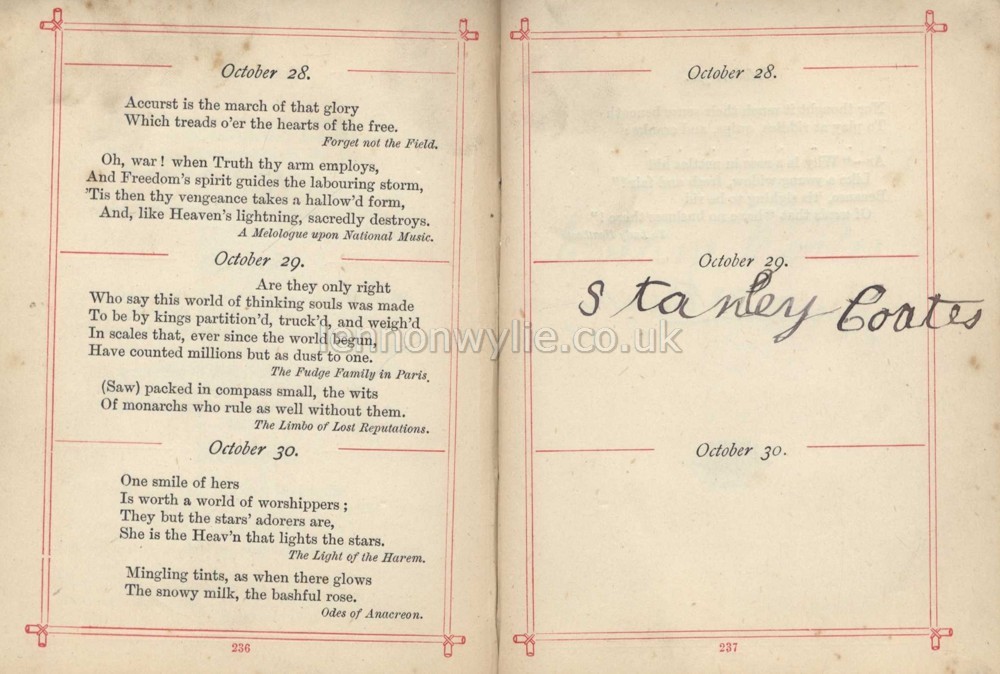 October 28.
Accurst is the march of that glory
Which treads o'er the hearts of the free.
Forget not the Field.
Oh, war! when Truth thy arm employs,
And Freedom's spirit guides the labouring storm,
'Tis then thy vengeance takes a hallow'd form,
And, like Heaven's lightning, sacredly destroys.
A Melologue upon National Music.
October 29.
Are they only right
Who say this world of thinking souls was made
To be by kings partition'd, truck'd, and weigh'd
In scales that, ever since the world begun,
Have counted millions but as dust to one.
The Fudge Family in Paris.
(Saw) packed in compass small, the wits
Of monarchs who rule as well without them.
The Limbo of Lost Reputations.
October 30.
One smile of hers
Is worth a world of worshippers;
They but the stars' adorers are,
She is the Heav'n that lights the stars.
The Light of the Harem.
Mingling tints, as when there glows
The snowy milk, the bashful rose.
Odes of Anacreon.
236
October 28.
October 29.
Stanley Coates
October 30.
237
lennonwylie.co.uk